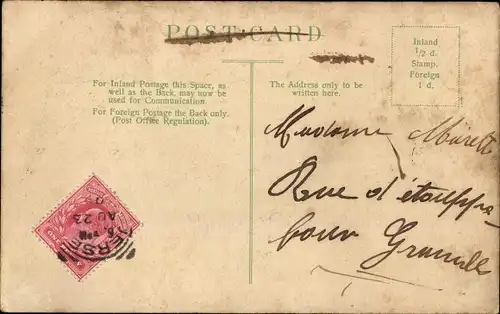 POST CARD
For Inland Postage this Space, as
well as the Back, may now be
used for Communication.
For Foreign Postage the Back only.
(Post Office Regulation).
The Address only to be
written here.
Inland
1/2 d.
Stamp.
Foreign
1 d.
Madame
Rue d'
Granville
AU 23